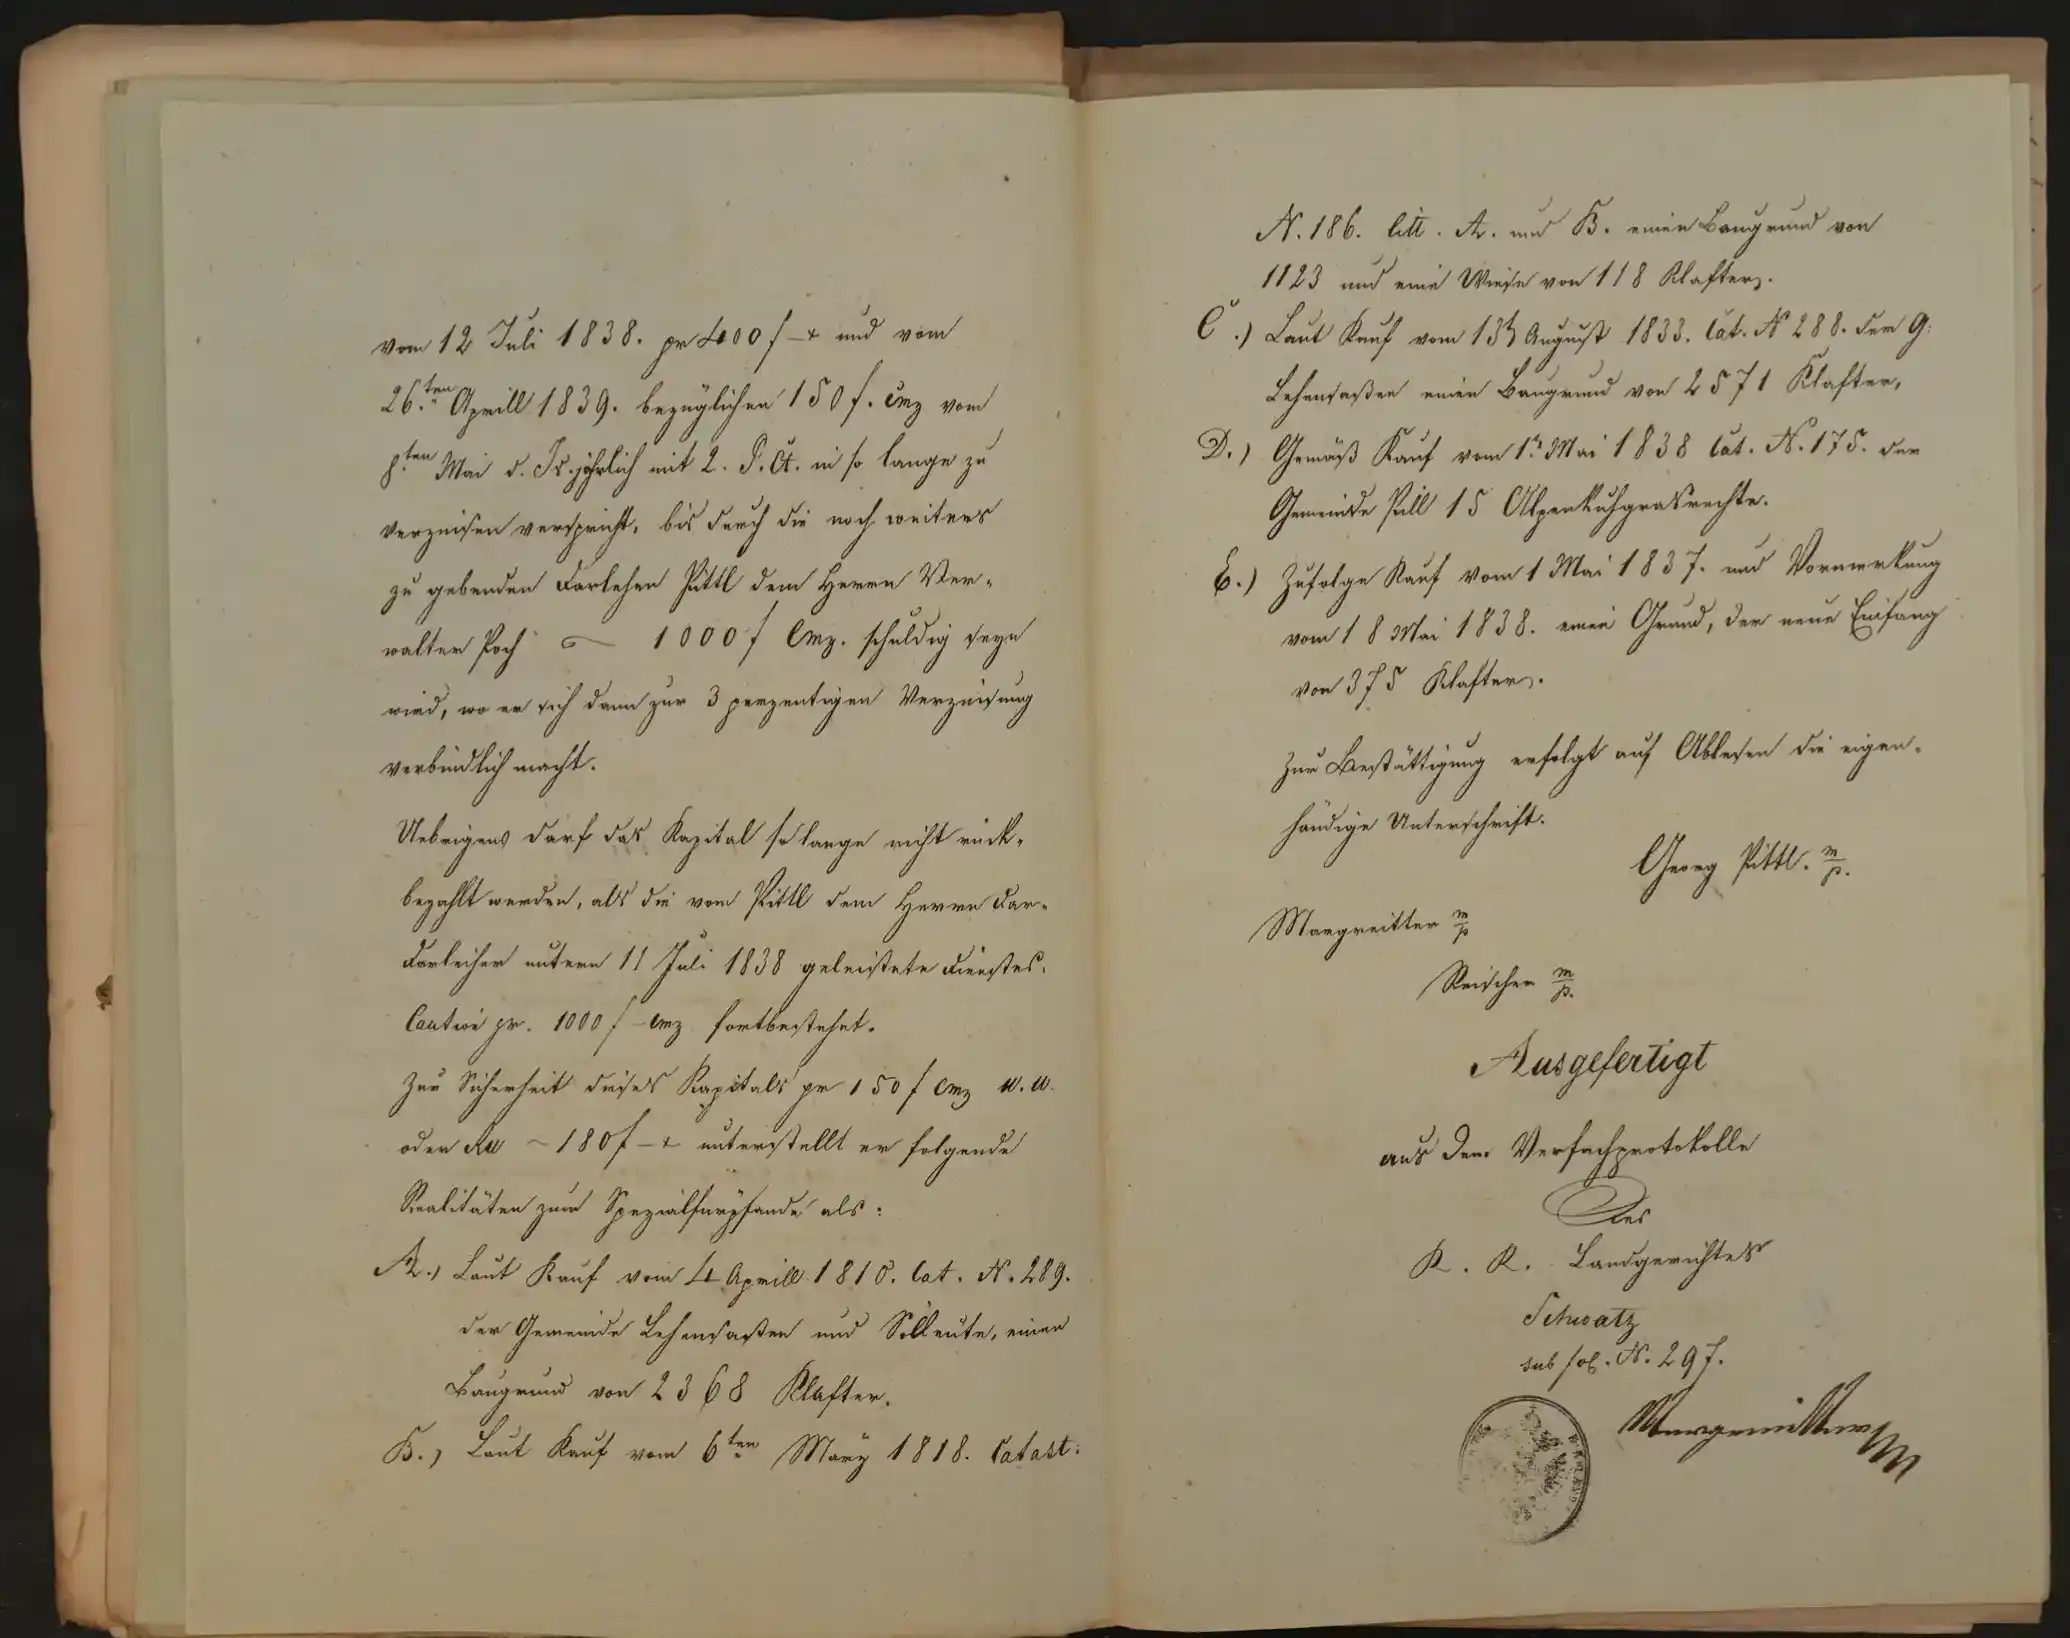 vom 12 Juli 1838. pr 400 f – x und vom
26.ten Aprill 1839. bezüglichen 150 f. Cmz vom
8ten Mai d. Js. jährlich mit 2. P. Ct. in so lange zu
verzinsen verspricht, bis durch die noch weiters
zu gebenden Darlehen Pittl dem Herrn Ver-
walter Poch 1000 f Cmz. schuldig seyn
wird, wo er sich dann zur 3 perzentigen Verzinsung
verbindlich macht.
Uebrigens darf das Kapital so lange nicht rück-
bezahlt werden, als die vom Pittl dem Herrn Dar-
Darleiher unterm 11 Juli 1838 geleistete Dienstes-
Caution pr. 1000 f – Cmz fortbestehet.
Zur Sicherheit dieses Kapitals pr 150 f Cmz W. W.
oder ~ 180 f – x unterstellt er folgende
Realitäten zum Spezialfürpfande als:
A.) Laut Kauf vom 4 Aprill 1810. Cat. N. 289.
der Gemeinde Lehensaßen und Söllleute, einen
Baugrund von 2368 Klafter.
B.) Laut Kauf vom 6ten März 1818. Catast:
N. 186. litt. A. und B. einen Baugrund von
1123 und eine Wiese von 118 Klafter.
C.) Laut Kauf vom 13t August 1833. Cat. N 288. der G:
Lehensaßen einen Baugrund von 2571 Klafter,
D.) Gemäß Kauf vom 1t Mai 1838 Cat. N. 175. der
Gemeinde Pill 15 Alpenkuhgrasrechte.
E.) Zufolge Kauf vom 1 Mai 1837. und Vormerkung
vom 18 Mai 1838. einen Grund, der neue Einfang
von 375 Klafter.
Zur Bestättigung erfolgt auf Ablesen die eigen-
händige Unterschrift.
Georg Pittl. m/p.
Margreitter m/p
Reischer m/p.
Ausgefertigt
aus dem Verfachprotokolle
des
K. K. Landgerichtes
Schwatz
sub fol. N. 297.
Margreitter